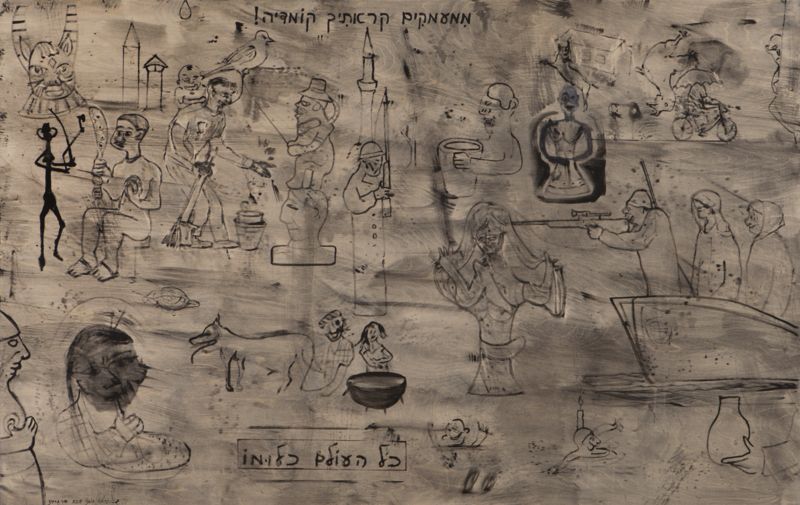 ממעמקים קראתיך קומדיה!
כל העולם כלומו